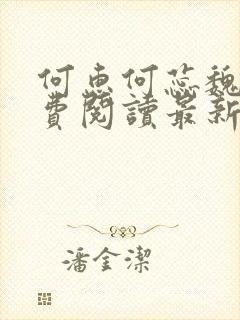 何惠何蕊魏
費閱讀最新
潘金潔